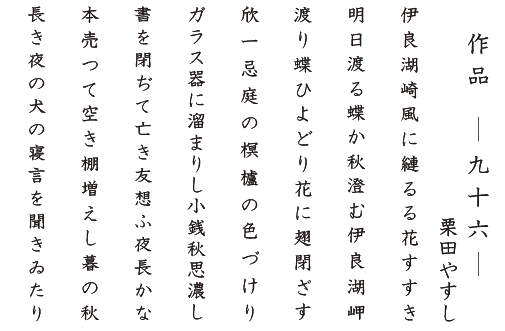 作品 ―九十六―
栗田やすし
伊良湖崎風に縺るる花すすき
明日渡る蝶か秋澄む伊良湖岬
渡り蝶ひよどり花に翅閉ざす
欣一忌庭の榠樝の色づけり
ガラス器に溜まりし小銭秋思濃し
書を閉ぢて亡き友想ふ夜長かな
本売つて空き棚増えし暮の秋
長き夜の犬の寝言を聞きゐたり